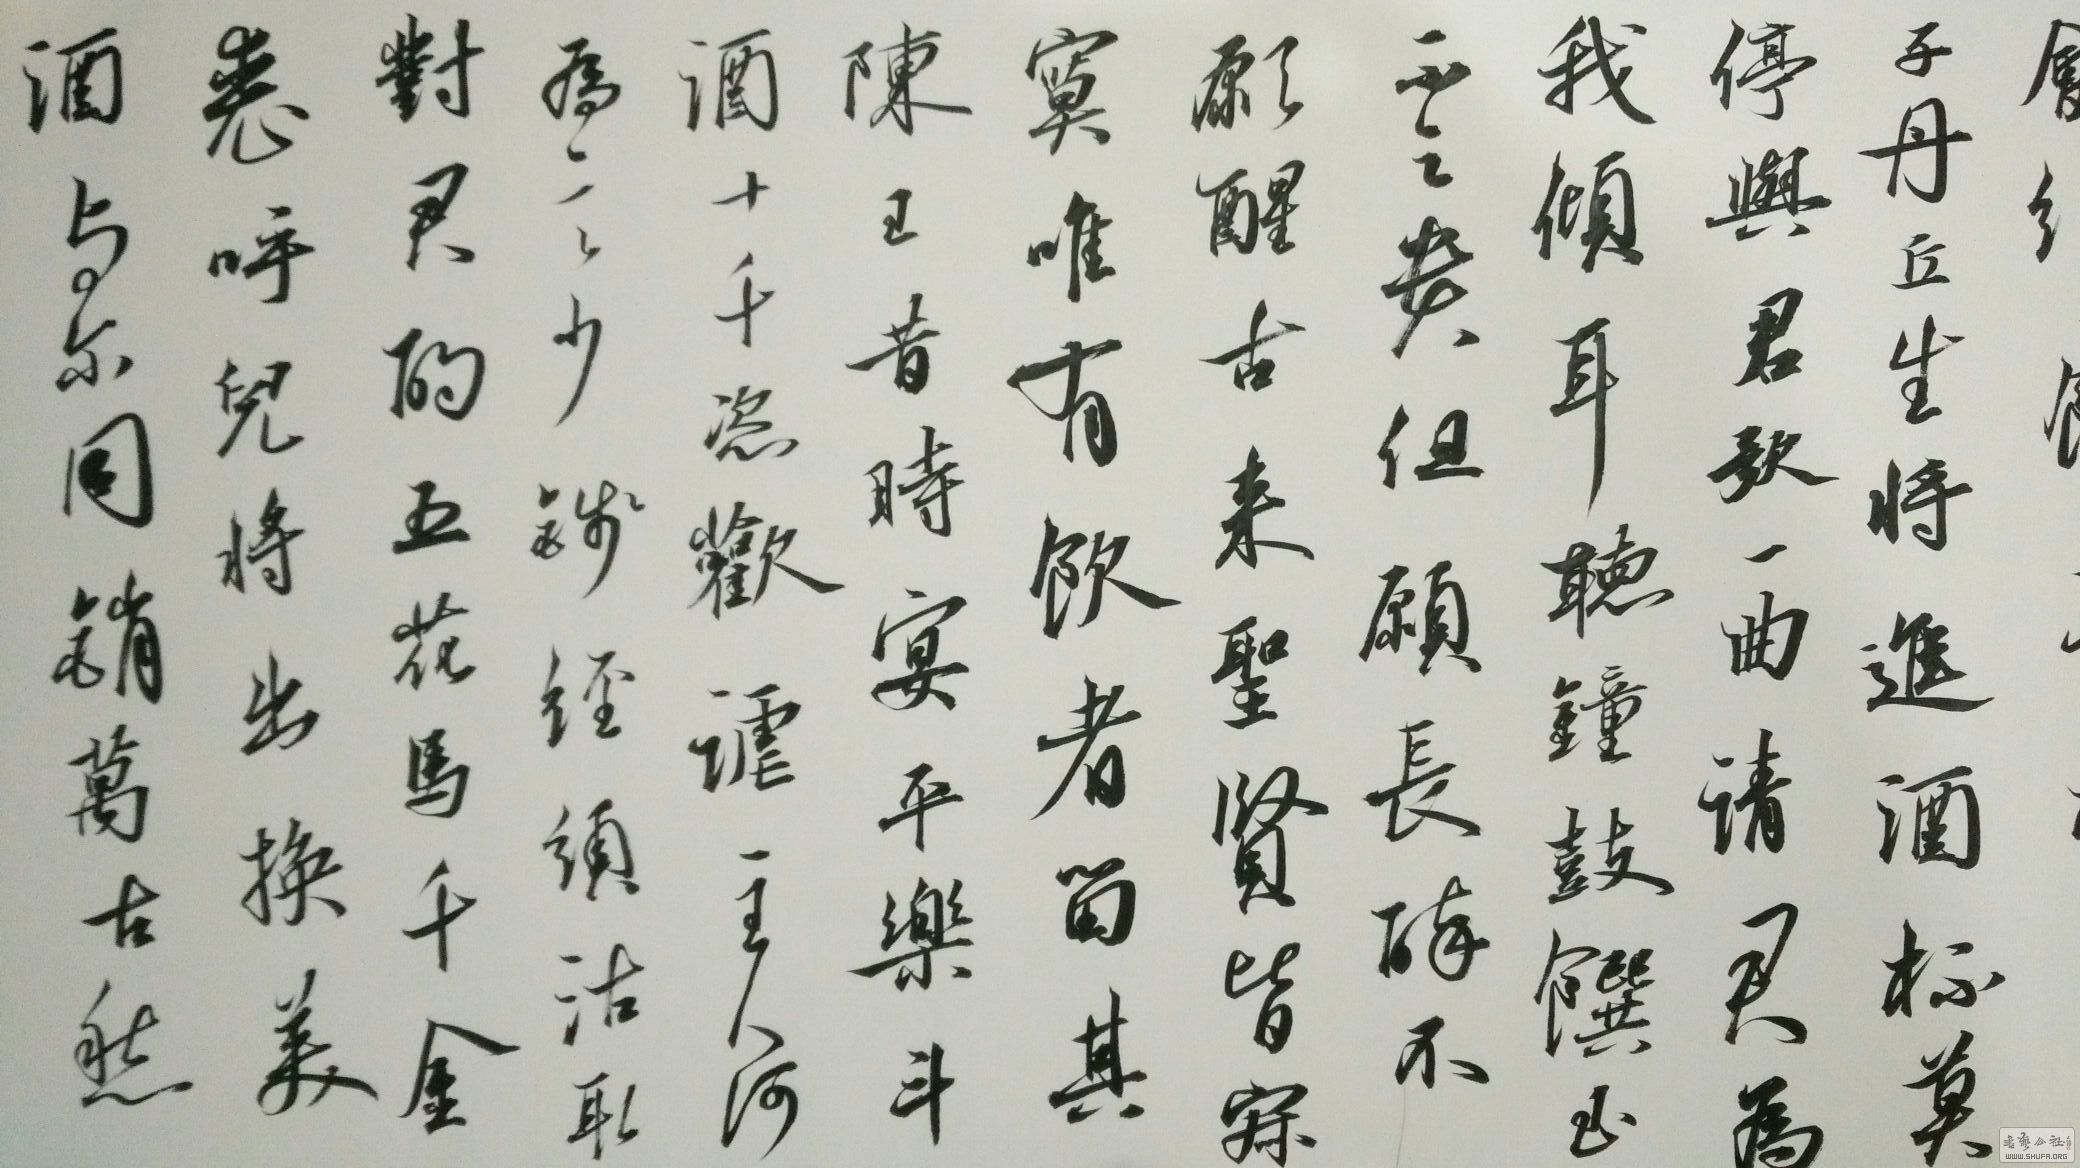 子丹丘生將進酒杯莫
停與君歌一曲请君為
我傾耳聽鐘鼓饌玉
不足貴但願長醉不
願醒古来聖賢皆寂
寞唯有飲者留其
陳王昔時宴平樂斗
酒十千恣歡謔主人何
為言少錢經須沽取
對君酌五花馬千金
裘呼兒將出換美
酒与尔同銷萬古愁
WWW.SHUFA.ORG